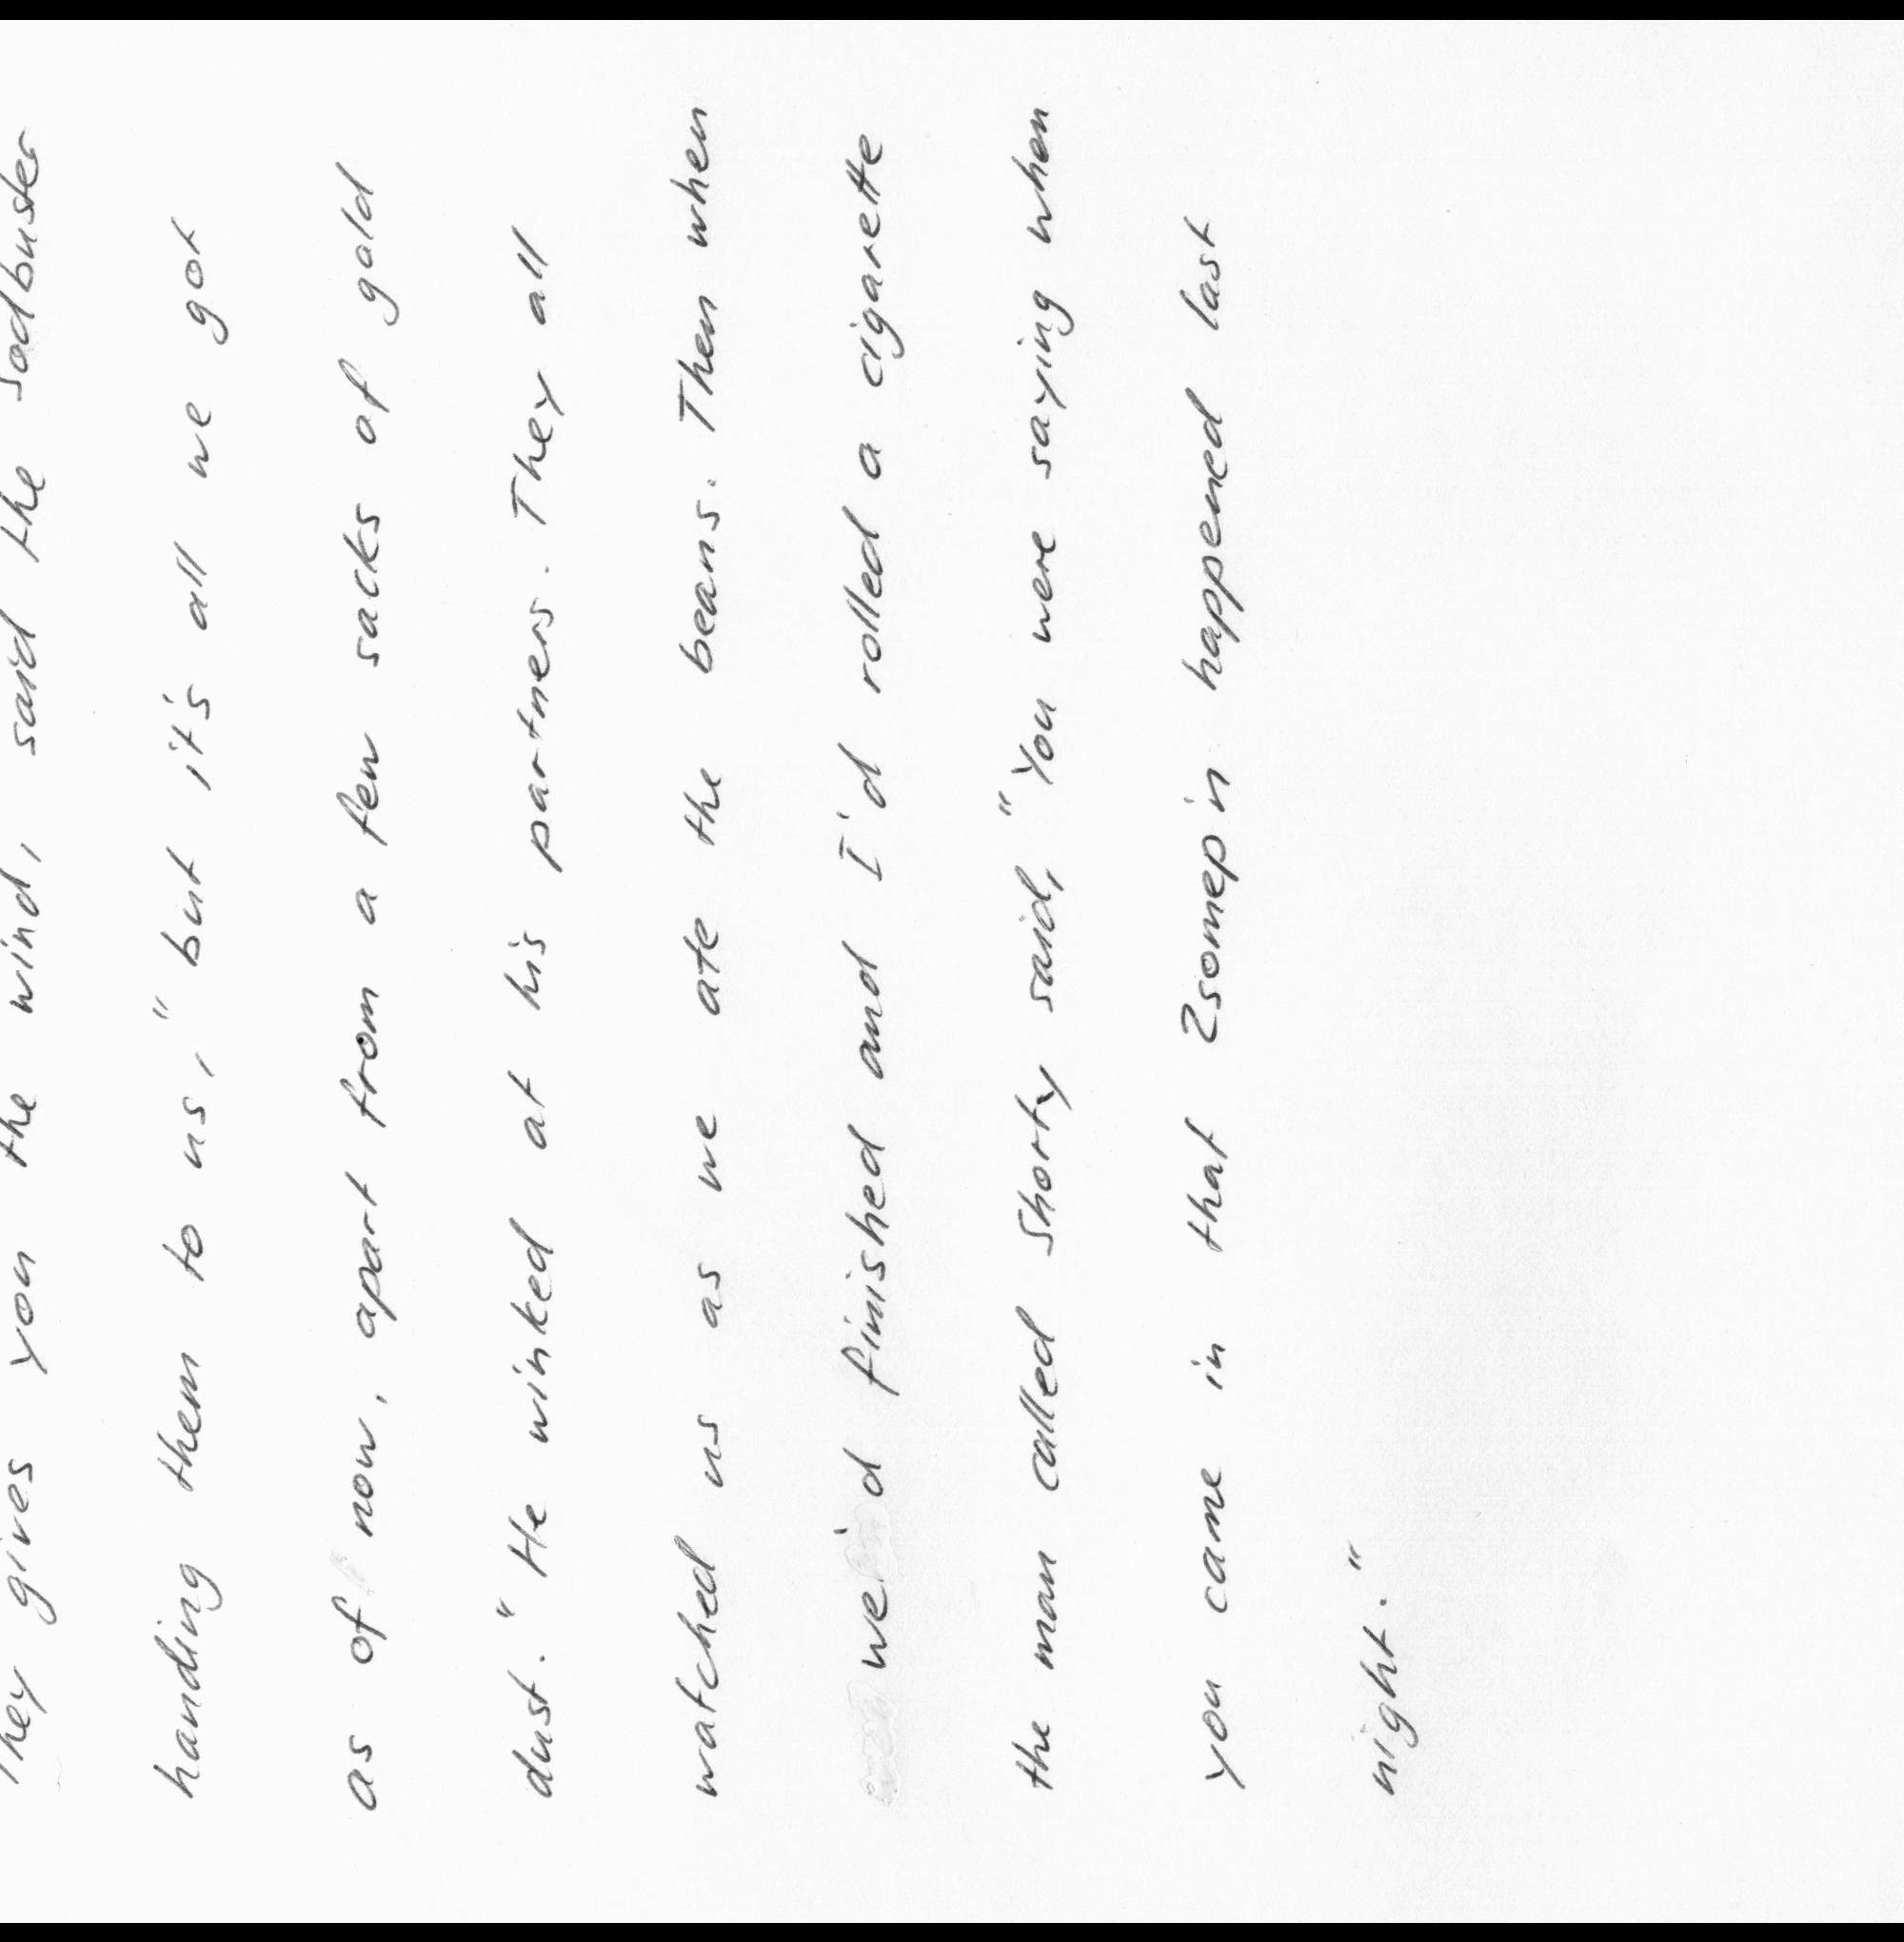 They gives you the wind, said the sodbuster
handing them to us, "but it's all we got
as of now, apart from a few sacks of gold
dust." He winked at his partners. They all
watched us as we ate the beans. Then when
we'd finished and I'd rolled a cigarette
the man called Shorty said, "You were saying when
you came in that 2somep'n happened last
night."